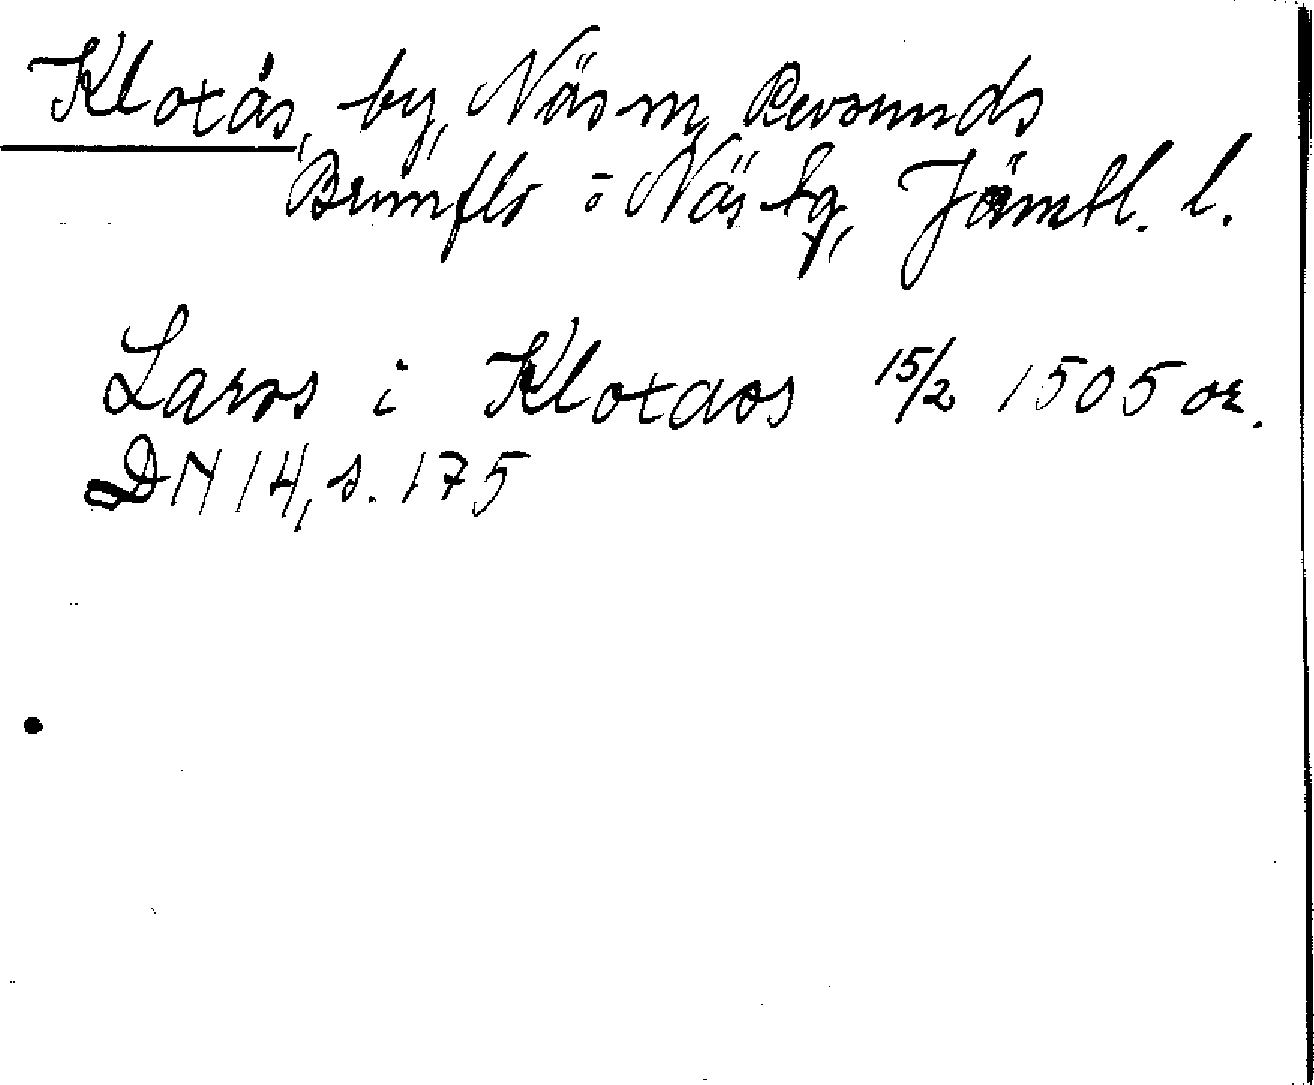 Kloxås, by, Näs sn, Revsunds
Brunflo o Näs tg, Jämtl. l.
Lavrs i Kloxaos 15/2 1505 or.
DN 14, s. 175